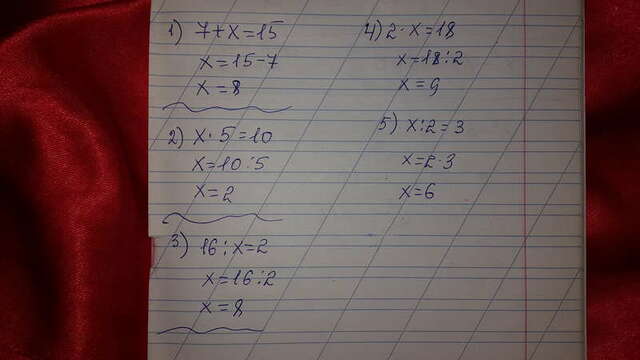 1) 7+x=15
x=15-7
x=8
2) x·5=10
x=10:5
x=2
3) 16:x=2
x=16:2
x=8
4) 2·x=18
x=18:2
x=9
5) x:2=3
x=2·3
x=6